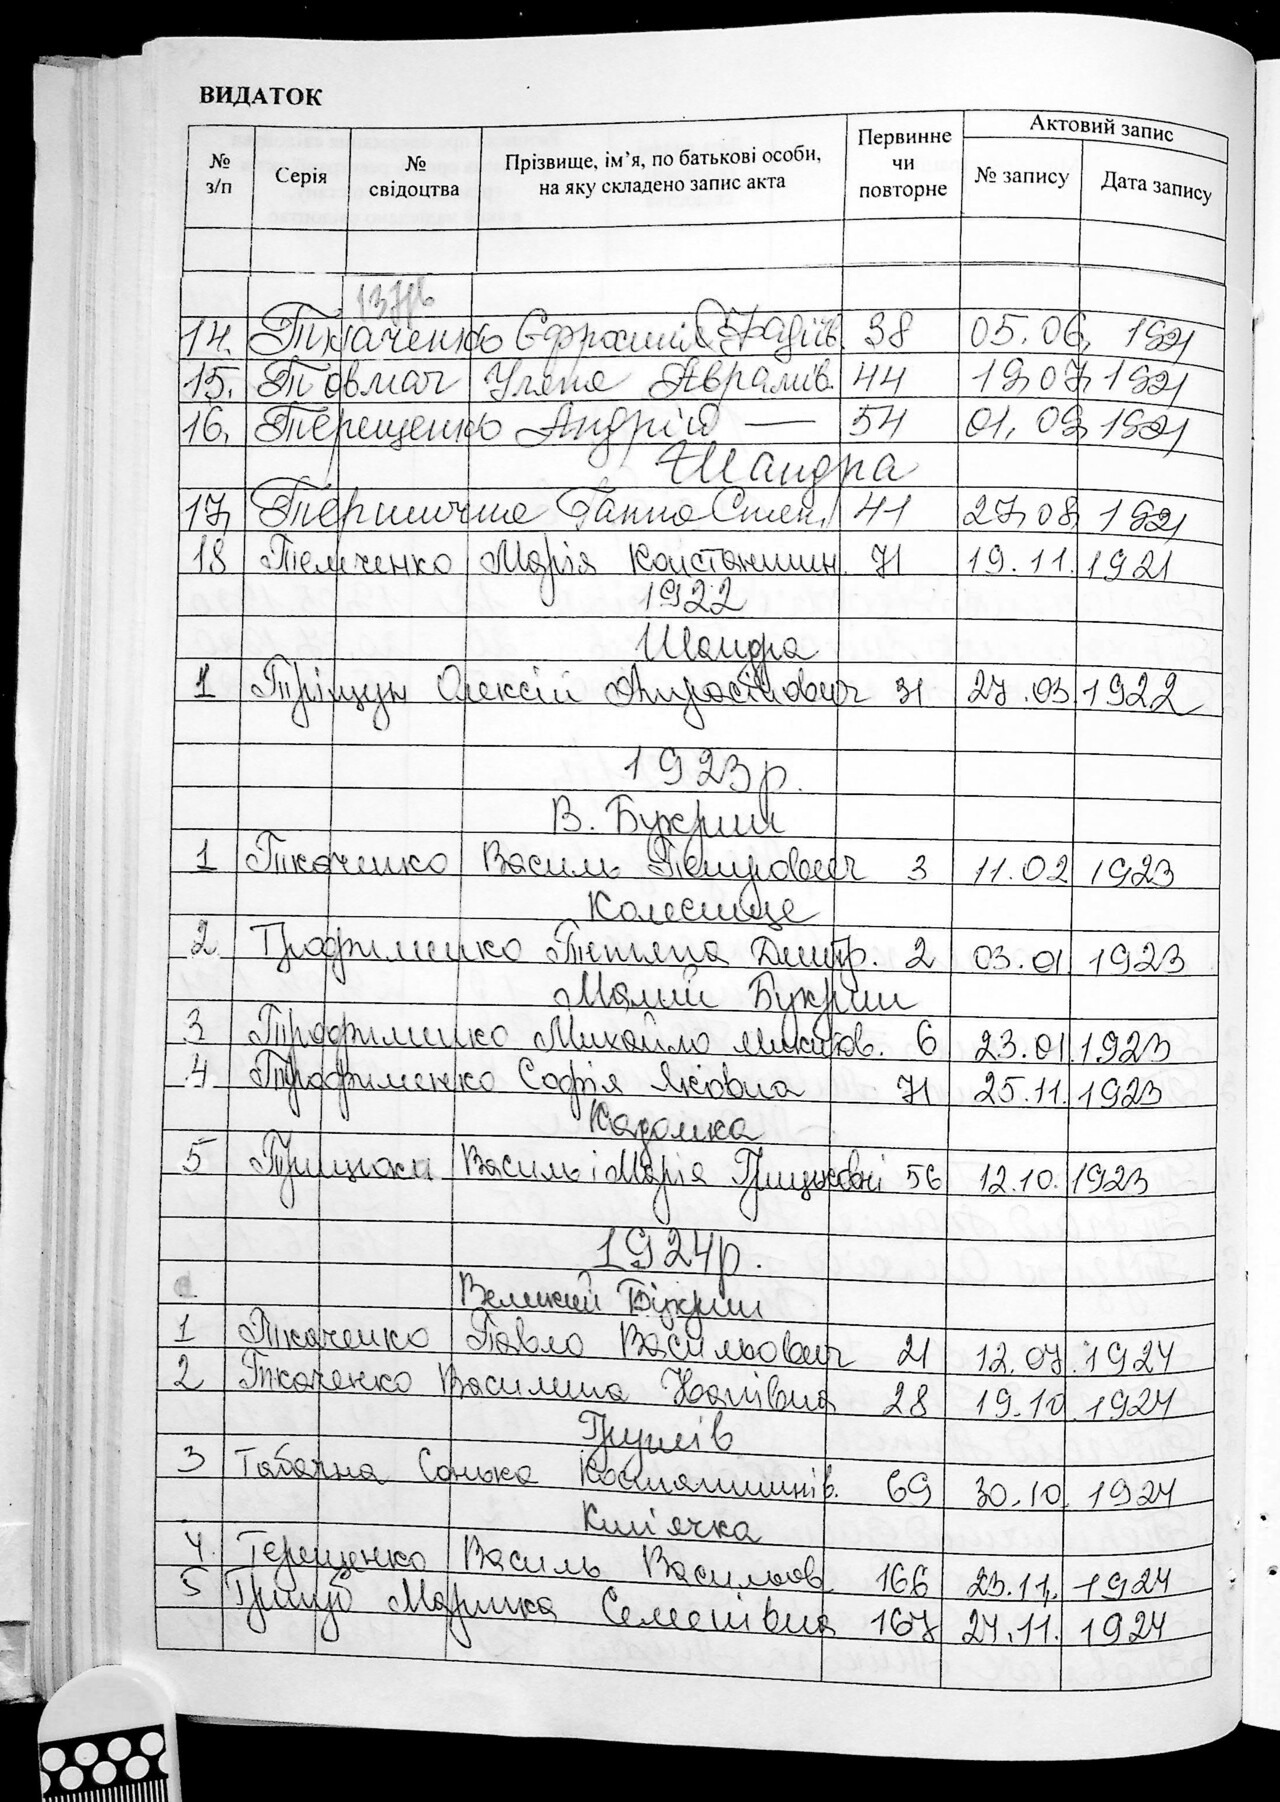 ВИДАТОК
№ з/п Серія № свідоцтва Прізвище, ім’я, по батькові особи, на яку складено запис акта Первинне чи повторне Актовий запис № запису Дата запису
14. Ткаченко 38 05.06. 1921
15. Товмач Уляна Аврамів. 44 19.07. 1921
16. Терещенко Андрій — 54 01.09. 1921
Шандра
17. Ганна Степ. 41 27.08. 1921
18 Темченко Марія Констянтин. 71 19.11. 1921
1922
Шандра
1 Тріщун Олексій 31 27.03. 1922
1923р.
В. Букрин
1 Ткаченко Василь Петрович 3 11.02 1923
Колесище
2 Трофименко Тетяна Дмитр. 2 03.01 1923
Малий Букрин
3 Трофименко Михайло Микитов. 6 23.01. 1923
4 Трофименко Софія Яківна 71 25.11. 1923
Кадомка
5 Василь і Марія 56 12.10. 1923
1924р.
Великий Букрин
1 Ткаченко Павло Васильович 21 12.07. 1924
2 Ткаченко Василина 28 19.10. 1924
Грушів
3 Табачна Сонька Костянтинів. 69 30.10. 1924
Кип'ячка
4. Терещенко Василь Васильов. 166 23.11. 1924
5 Маринка Семенівна 167 24.11. 1924